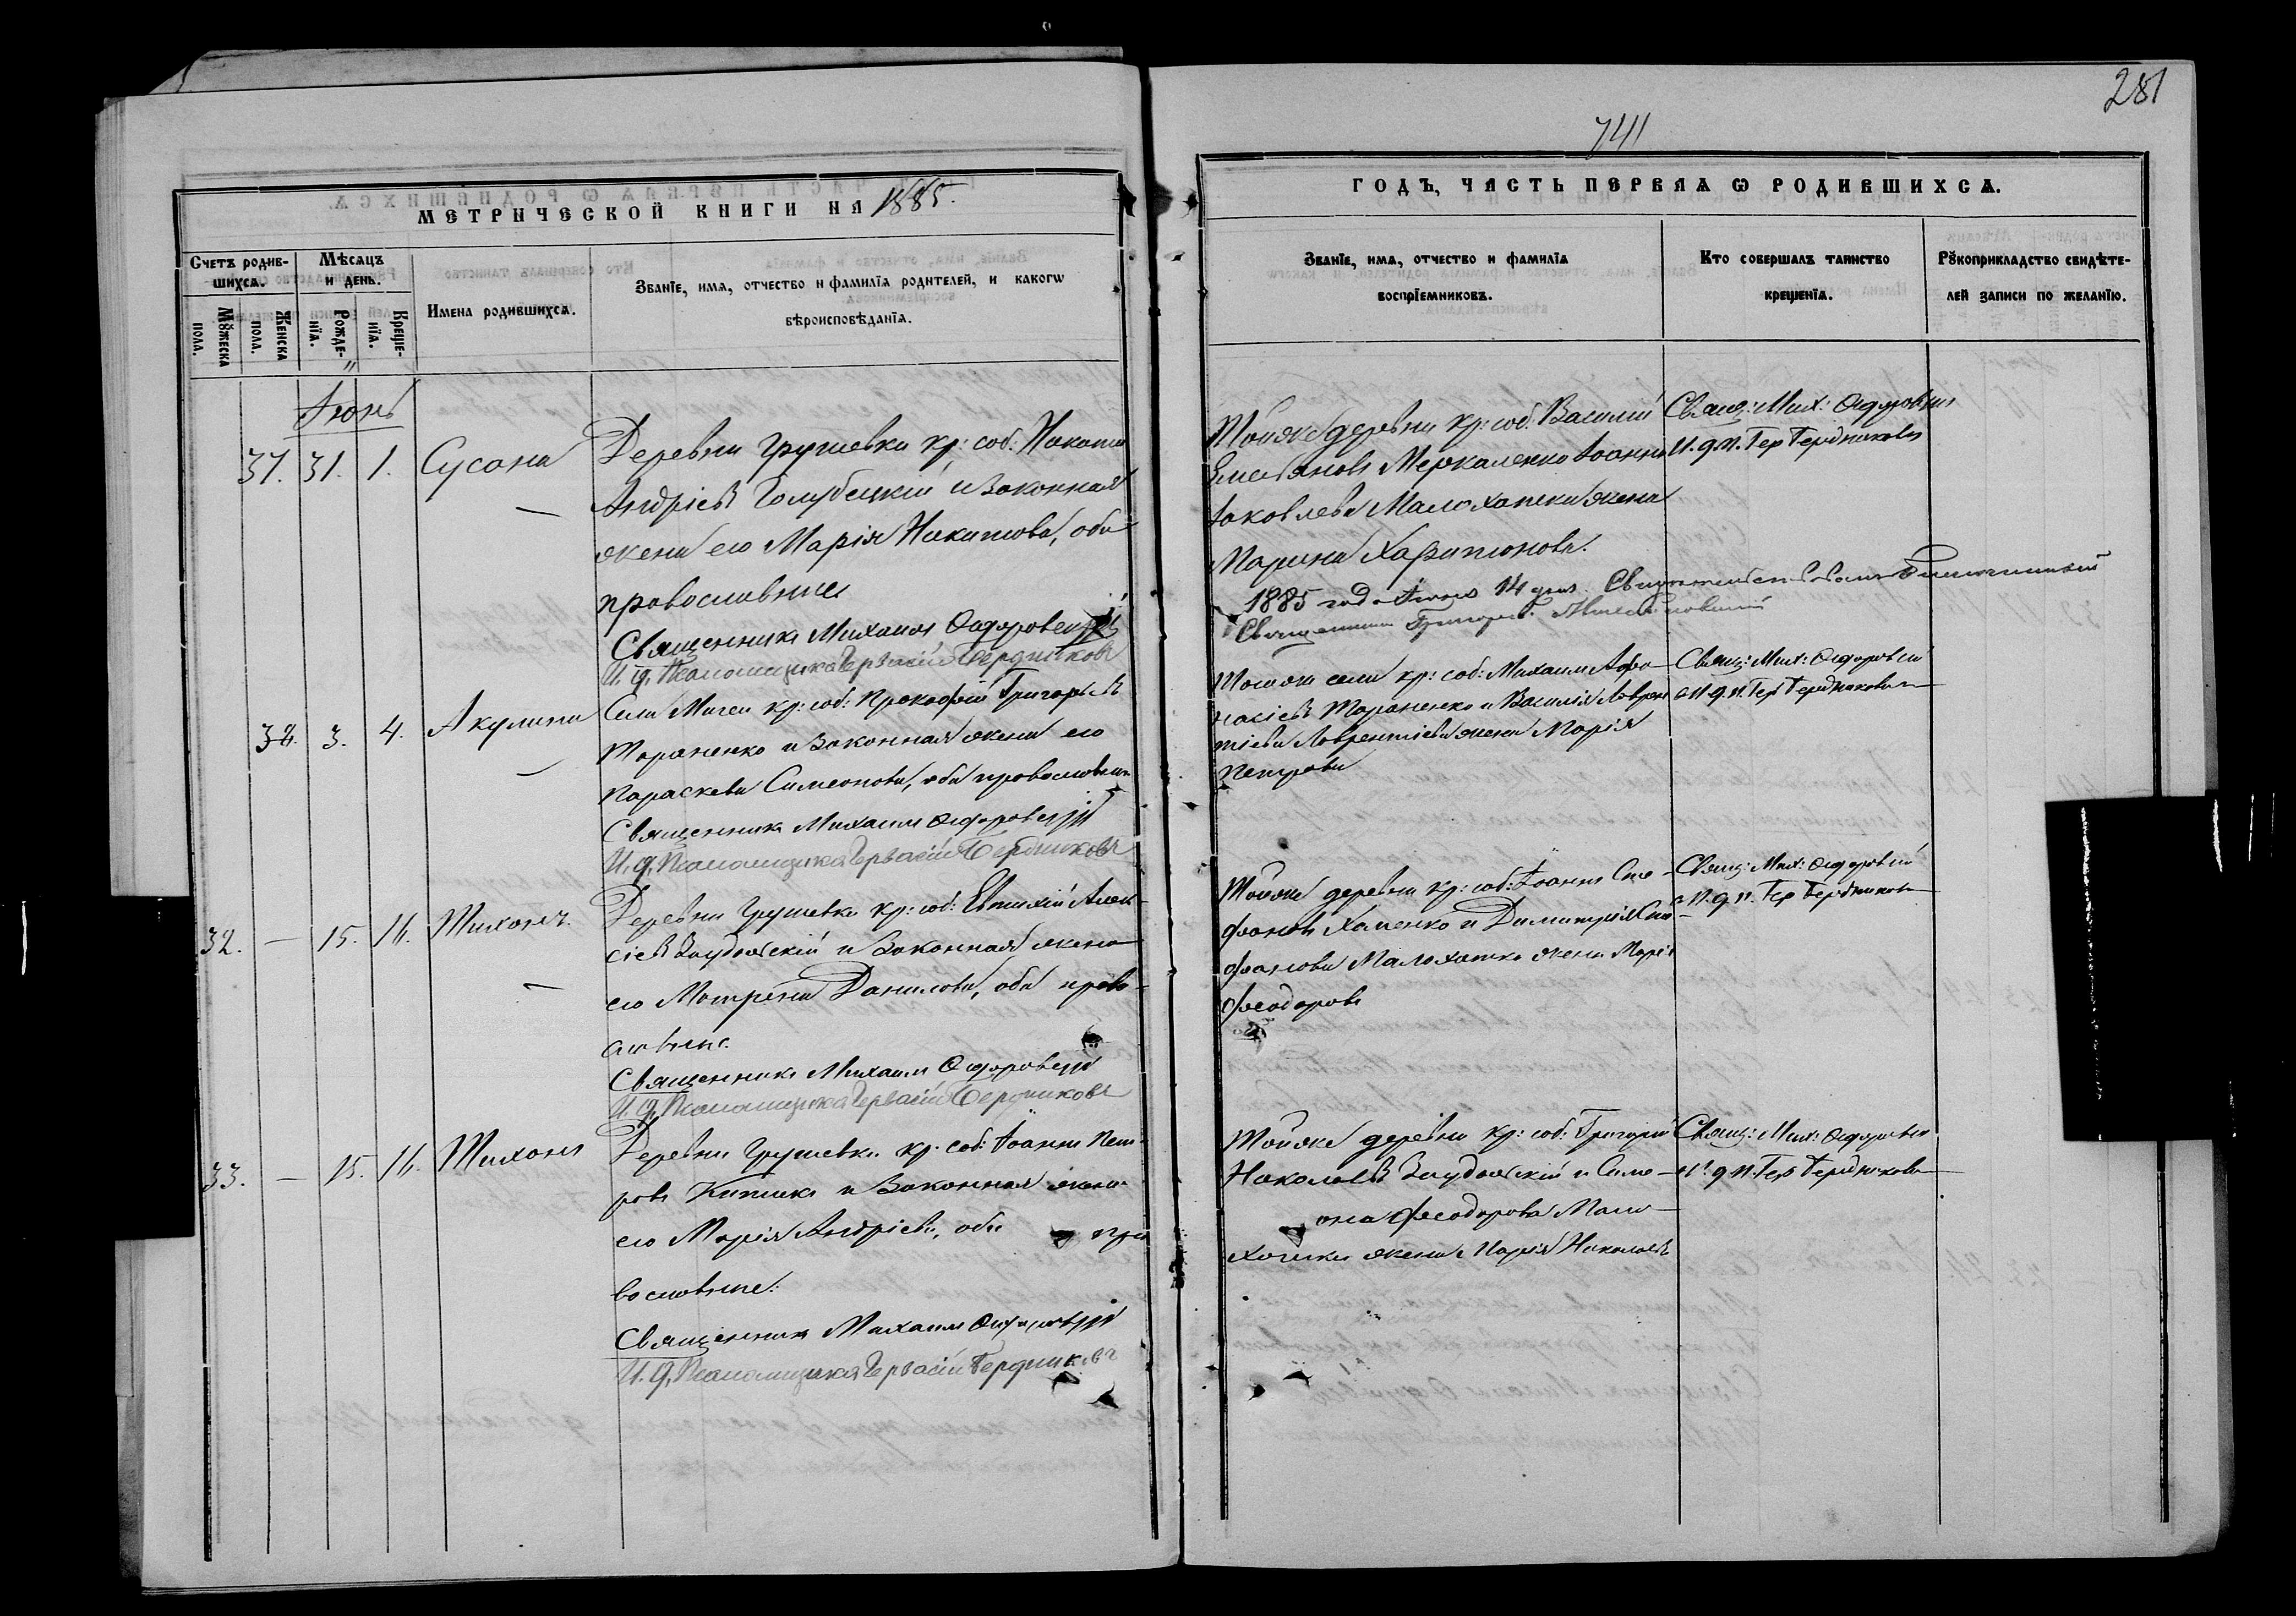 281
741
МЕТРИЧЕСКОЙ КНИГИ НА 1885.
ГОДЪ, ЧАСТЬ ПЕРВАѦ Ѡ РОДИВШИХСѦ.
Счетъ родив-
шихсѧ.
Мѣсѧцъ
и день.
Мꙋжеска
пола.
Женска
пола.
Рожде-
нїѧ.
Креще-
нїѧ.
Имена родившихсѧ.
Званїе, имѧ, отчество и фамилїѧ родителей, и какогѡ
вѣроисповѣданїѧ.
Званїе, имѧ, отчество и фамилїѧ
воспрїемниковъ.
Кто совершалъ таинство
крещенїѧ.
Рꙋкоприкладство свидѣте-
лей записи по желанїю.
Іюнь
37. 31. 1. Сусана
Деревни Грушевки кр: соб: Никита
Андріевъ Голубецкій и Законная
жена его Марія Никитова, оба
православные
Священникъ Михаилъ
И. д. Псаломщика Гервасій Бердниковъ
Тойже деревни кр: соб: Василій
Емельяновъ Меркаленко Іоанна
Іаковлева Малохатки жена
Марина Харитонова.
Свящ: Мих:
И. д. п. Гер Бердниковъ
1885 года Іюня 14 дня
Священникъ Григорій
38. 3. 4. Акулина
Села Мигеи кр: соб: Прокофій Григорьевъ
Тараненко и Законная жена его
Параскева Симеонова, оба православные
Священникъ Михаилъ
И. д. Псаломщика Гервасій Бердниковъ
Тогоже села кр: соб: Михаилъ Афа-
насіевъ Тараненко и Василія Лаврен
тіева Лаврентіева жена Марія
Петрова
Свящ: Мих:
И. д. п. Гер Бердниковъ
32. — 15. 16. Тихонъ.
Деревни Грушевки кр: соб: Евтихій Алек-
сіевъ и Законная жена
его Матрена Данилова, оба право-
славные.
Священникъ Михаилъ
И. д. Псаломщика Гервасій Бердниковъ
Тойже деревни кр: соб: Іоаннъ Сте-
фановъ Хаменко и Димитрія
фанова Малохатка жена Марія
Феодорова
Свящ: Мих:
И. д. п. Гер Бердниковъ
33. — 15. 16. Тихонъ
Деревни Грушевки кр: соб: Іоаннъ Пет-
ровъ и Законная жена
его Марія Андріева, оба пра
вославные.
Священникъ Михаилъ
И. д. Псаломщика Гервасій Бердниковъ
Тойже деревни кр: соб: Григорій
Николаевъ и Симе-
она Феодорова Мало-
хатки жена Марія Николаева
Свящ: Мих:
И. д. п. Гер Бердниковъ